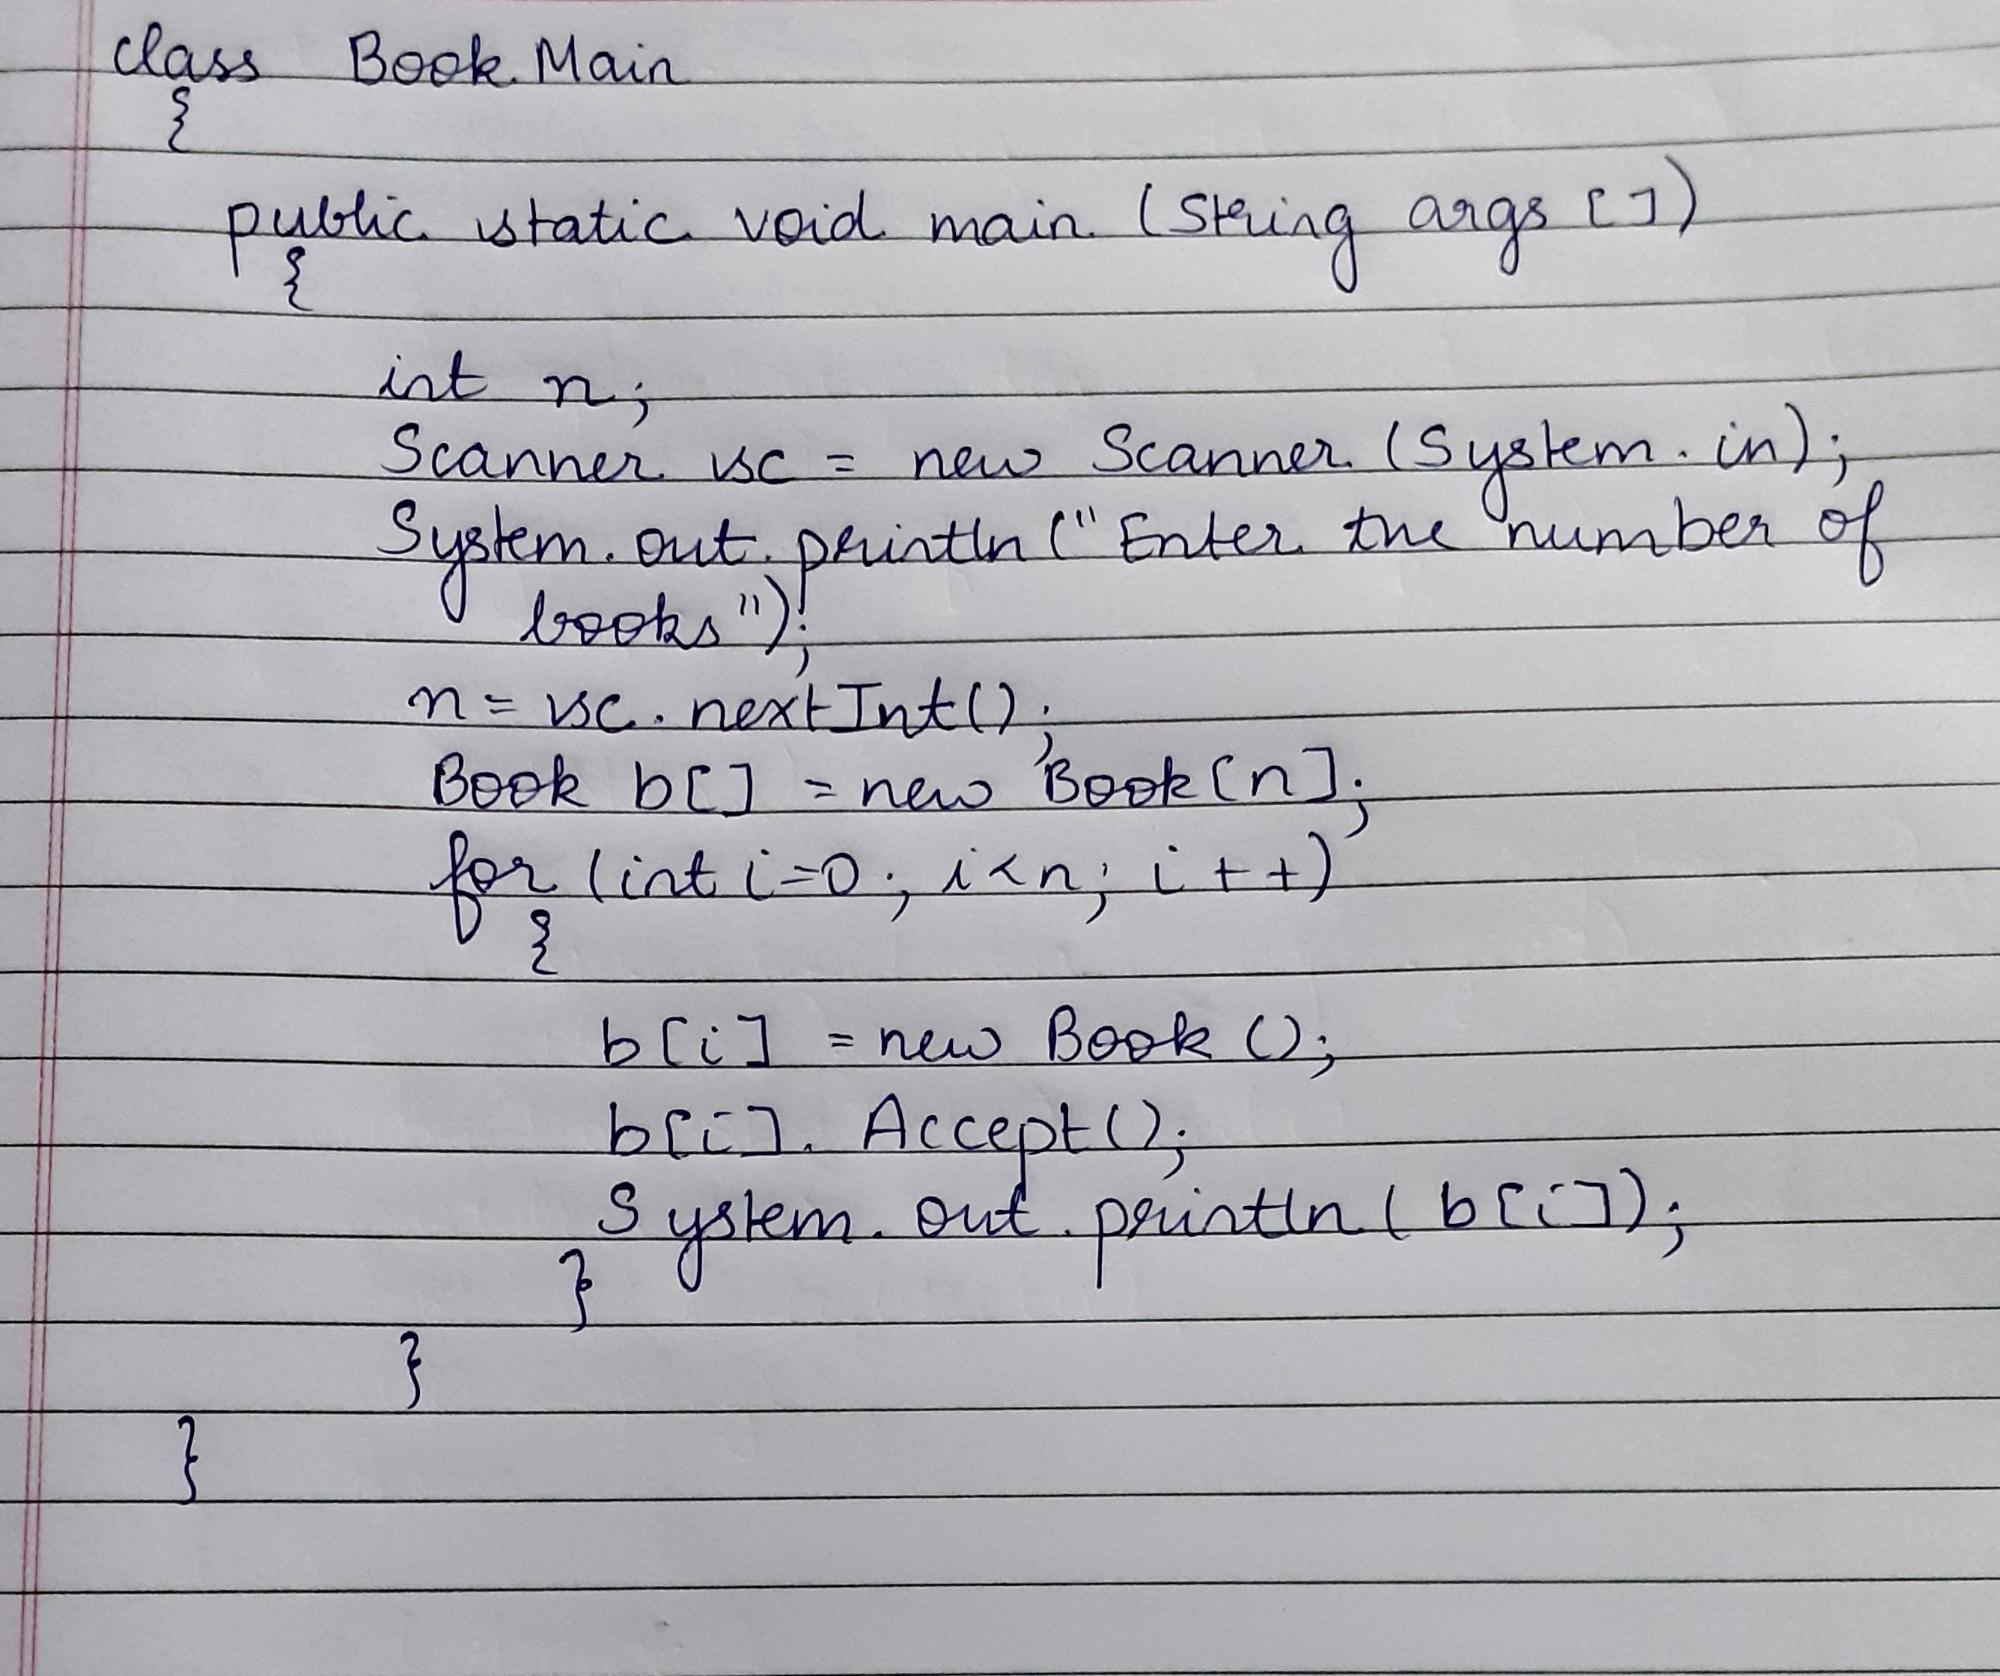 class Book Main
{
public static void main (String args [])
{
int n;
Scanner sc = new Scanner (System.in);
System.out.println ("Enter the number of
books");
n = sc.nextInt();
Book b[] = new Book[n];
for (int i=0; i<n; i++)
{
b[i] = new Book ();
b[i]. Accept();
System.out.println( b[i]);
}
}
}